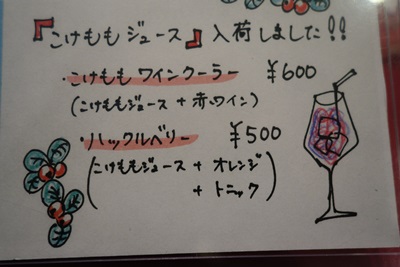 『こけももジュース』入荷しました!!
・こけもも ワインクーラー ¥600
(こけももジュース + 赤ワイン)
・ハックルベリー ¥500
(こけももジュース + オレンジ
+ トニック)